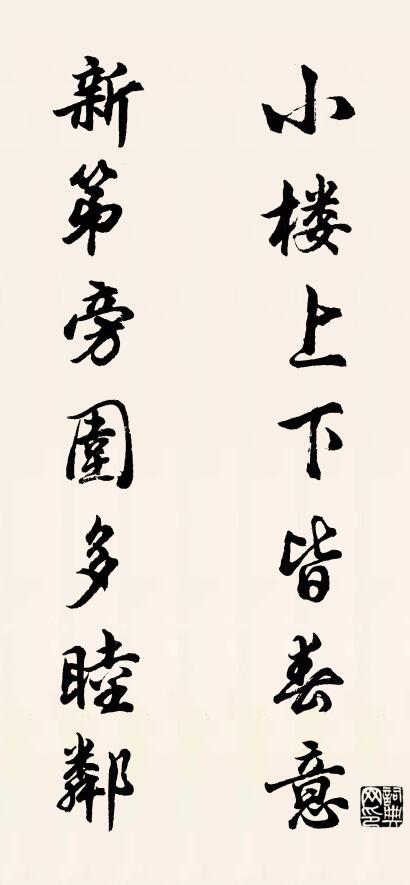 小楼上下皆春意
新第旁圍多睦鄰
詞典網